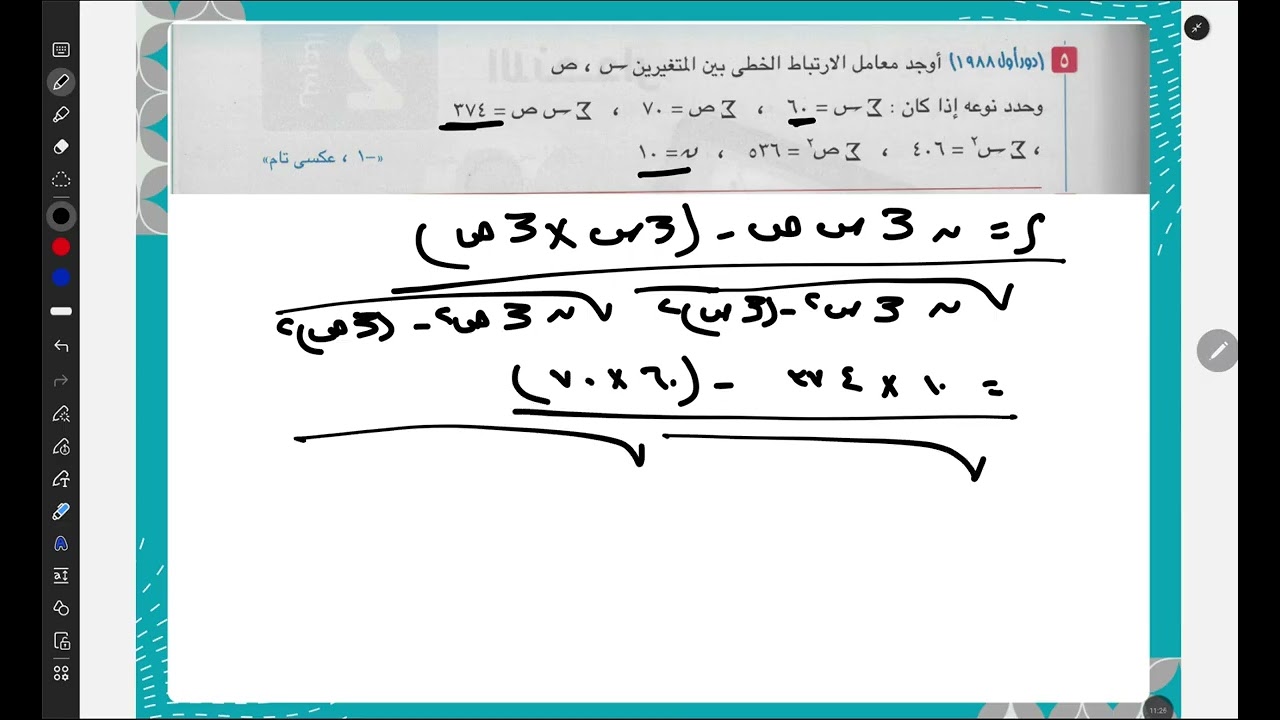 ٥ (دور أول ١٩٨٨) أوجد معامل الارتباط الخطى بين المتغيرين س ، ص
وحدد نوعه إذا كان : ∑ س = ٦٠ ، ∑ ص = ٧٠ ، ∑ س ص = ٣٧٤
، ∑ س² = ٤٠٦ ، ∑ ص² = ٥٣٦ ، ن = ١٠ «-١ ، عكسى تام»
ر = ن ∑ س ص - (∑ س × ∑ ص)
√ ن ∑ س² - (∑ س)² √ ن ∑ ص² - (∑ ص)²
= ١٠ × ٣٧٤ - (٦٠ × ٧٠)
√ √
11:26